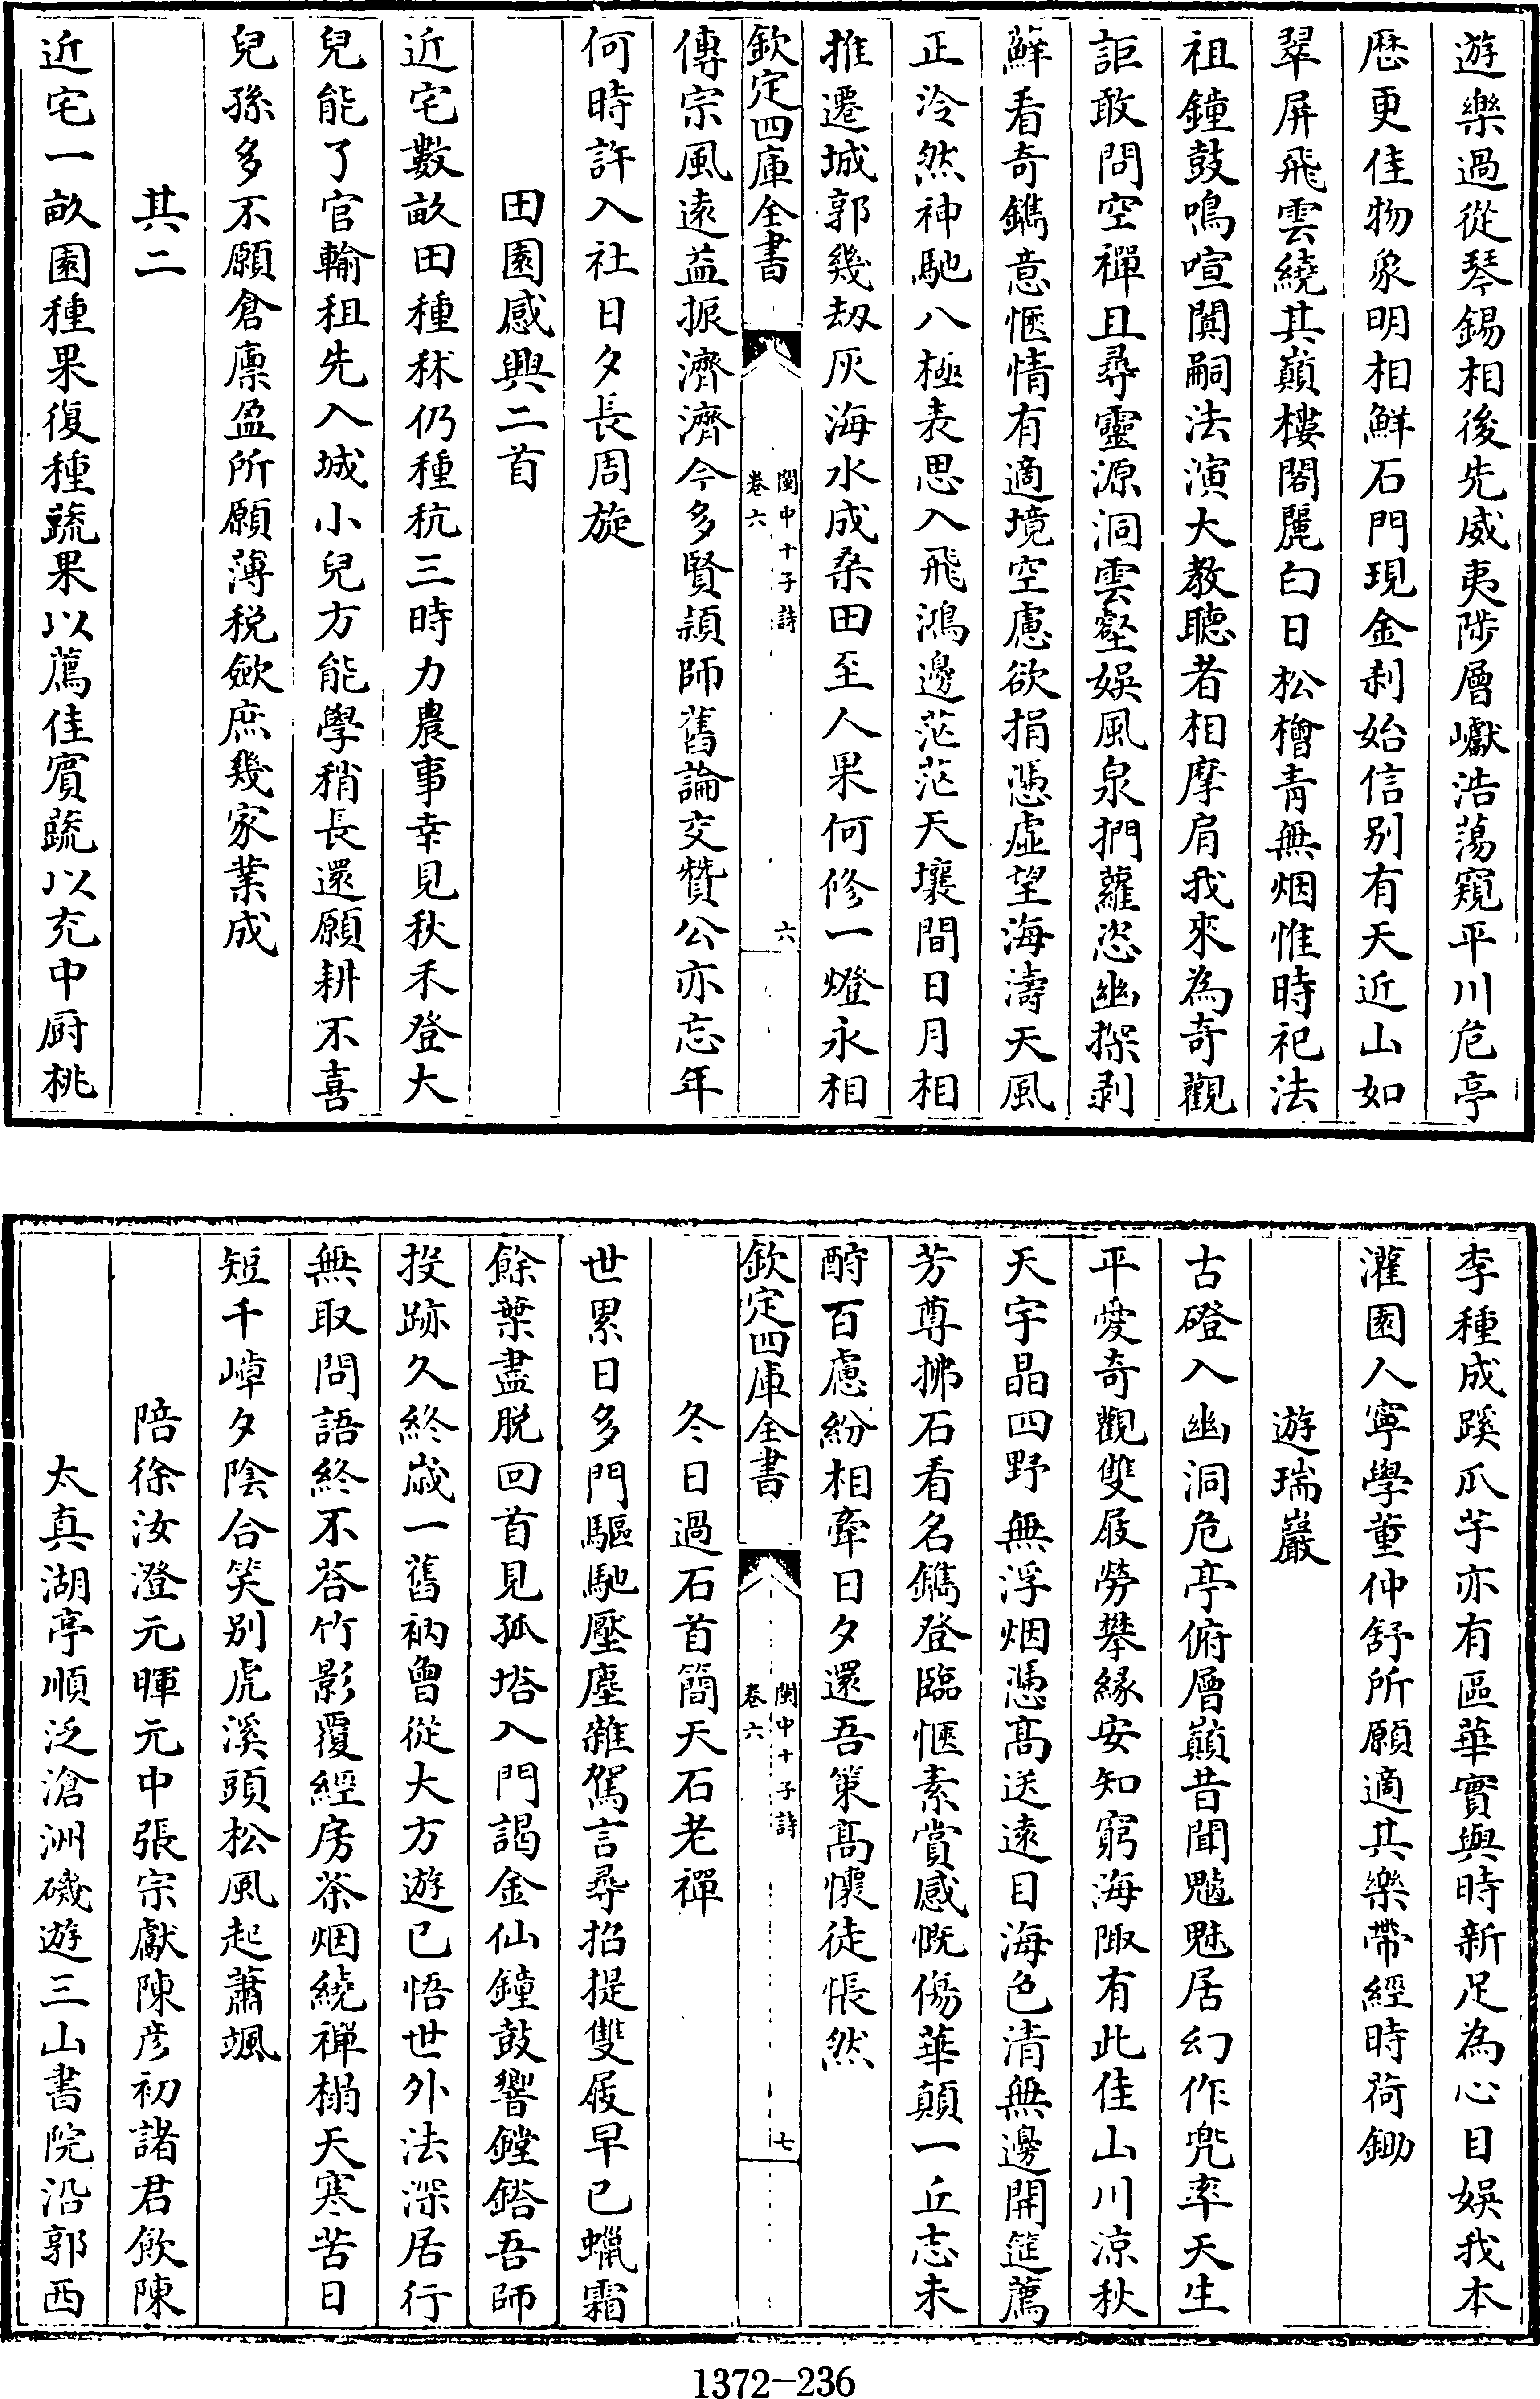 遊樂過從琴錫相後先威夷陟層巘浩蕩窺平川危亭
歴更佳物象明相鮮石門現金刹始信别有天近山如
翠屏飛雲繞其巔樓閣麗白日松檜青無烟惟時祀法
祖鐘鼓鳴喧闐嗣法演大教聽者相摩肩我來為奇觀
詎敢問空禪且尋靈源洞雲壑娛風泉捫蘿恣幽探剥
蘚看奇鐫意愜情有適境空慮欲捐憑虛望海濤天風
正泠然神馳八極表思入飛鴻邊茫茫天壤間日月相
推遷城郭幾刼灰海水成桑田至人果何修一燈永相
欽定四庫全書
閩中十子詩
卷六
六
傳宗風遠益振濟濟今多賢頴師舊論交贊公亦忘年
何時許入社日夕長周旋
田園感興二首
近宅數畝田種秫仍種秔三時力農事幸見秋禾登大
兒能了官輸租先入城小兒方能學稍長還願耕不喜
兒孫多不願倉廩盈所願薄税斂庶幾家業成
其二
近宅一畝園種果復種蔬果以薦佳賓蔬以充中厨桃
李種成蹊瓜芋亦有區華實與時新足為心目娛我本
灌園人寧學董仲舒所願適其樂帶經時荷鋤
遊瑞巖
古磴入幽洞危亭俯層巔昔聞魑魅居幻作兜率天生
平愛奇觀雙屐勞攀緣安知窮海陬有此佳山川涼秋
天宇晶四野無浮烟憑髙送遠目海色清無邊開筵薦
芳尊拂石看名鐫登臨愜素賞感慨傷華顛一丘志未
酧百慮紛相牽日夕還吾策髙懷徒悵然
欽定四庫全書
閩中十子詩
卷六
七
冬日過石首簡天石老禪
世累日多門驅馳壓塵雜駕言尋招提雙屐早已蠟霜
餘葉盡脱回首見孤塔入門謁金仙鐘鼓響鏜鎝吾師
投跡久終嵗一舊衲曾從大方遊已悟世外法深居行
無取問語終不荅竹影覆經房茶烟繞禪榻天寒苦日
短千嶂夕陰合笑别虎溪頭松風起蕭颯
陪徐汝澄元暉元中張宗獻陳彦初諸君飲陳
太真湖亭順泛滄洲磯遊三山書院沿郭西
1372-236